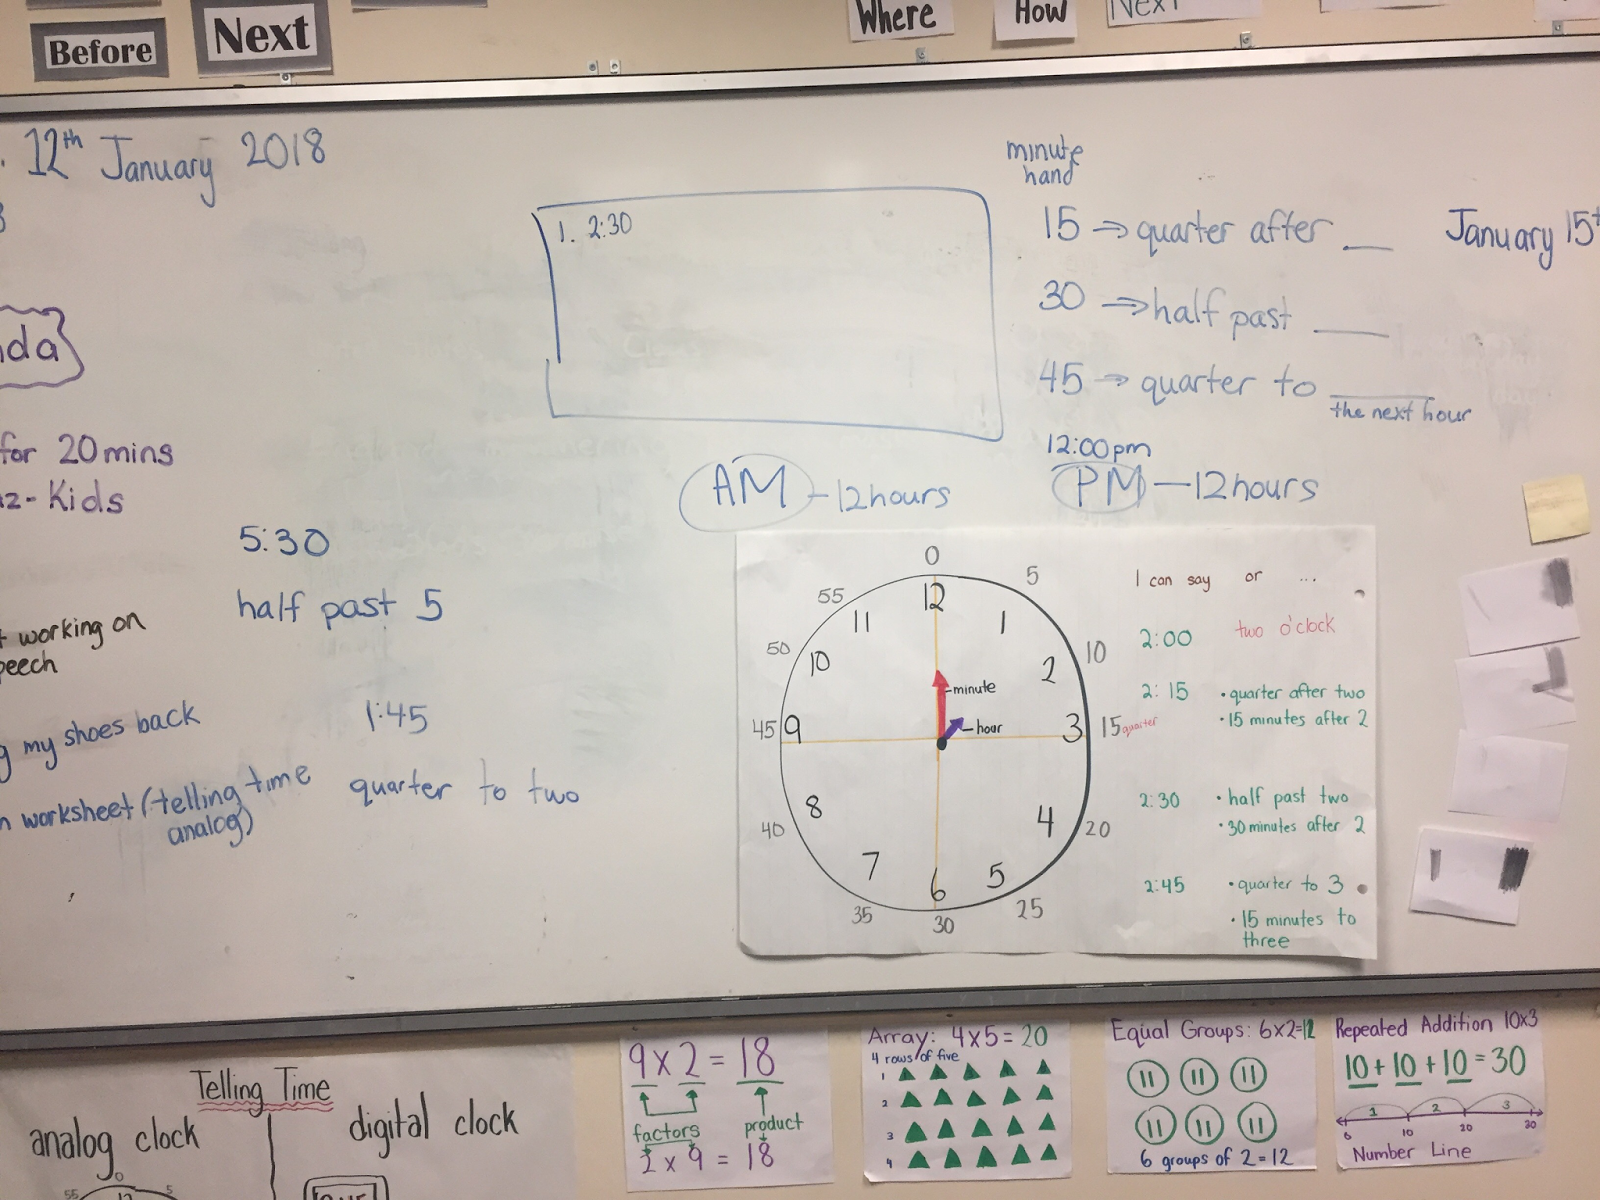 Before
Next
Where
How
Next
12th January 2018
minute
hand
15 → quarter after __
January 15t
30 → half past __
45 → quarter to __
the next hour
1. 2:30
12:00pm
AM - 12 hours
PM - 12 hours
da
for 20 mins
z-Kids
5:30
half past 5
working on
peech
1:45
g my shoes back
quarter to two
n worksheet (telling time
analog)
0
5
10
15 quarter
20
25
30
35
40
45
50
55
12
1
2
3
4
5
6
7
8
9
10
11
minute
hour
I can say or ...
2:00 two o'clock
2:15 • quarter after two
• 15 minutes after 2
2:30 • half past two
• 30 minutes after 2
2:45 • quarter to 3
• 15 minutes to
three
Telling Time
analog clock
digital clock
0
55
5
12
9 x 2 = 18
factors product
2 x 9 = 18
Array: 4 x 5 = 20
4 rows of five
1
2
3
4
Equal Groups: 6x2=12
6 groups of 2 = 12
Repeated Addition 10x3
10 + 10 + 10 = 30
1 2 3
0 10 20 30
Number Line